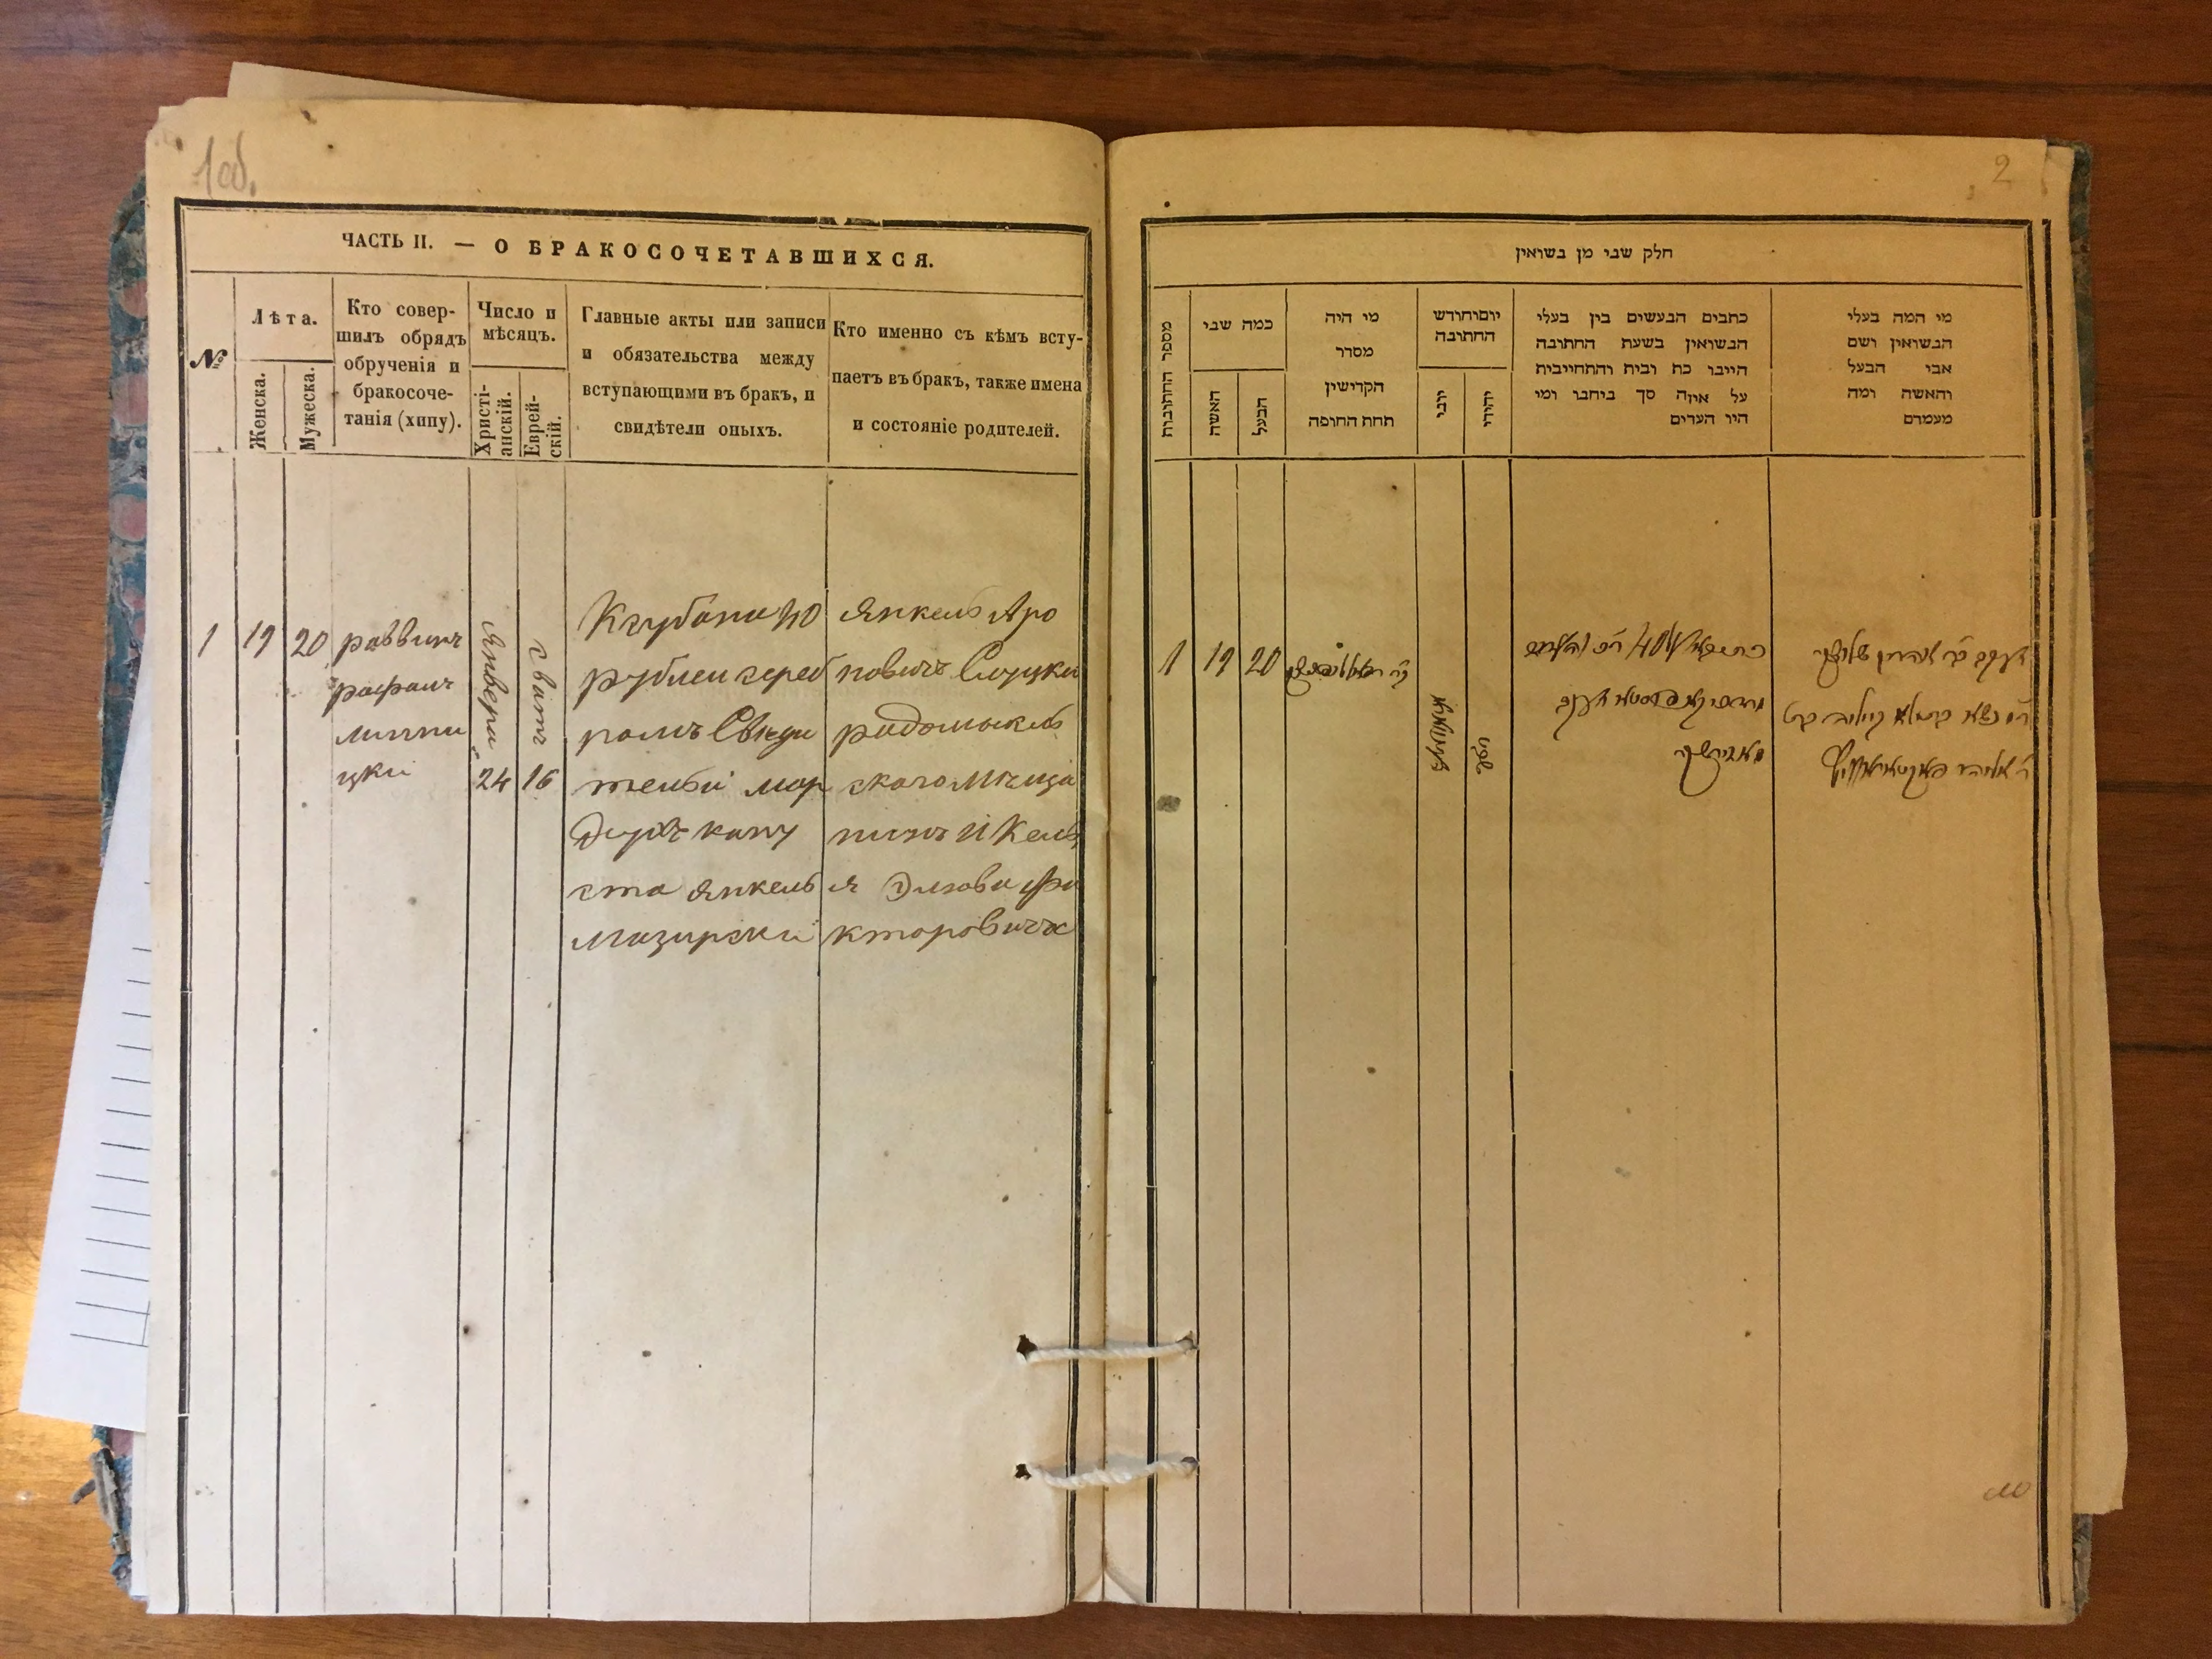 1об.
ЧАСТЬ II. — О БРАКОСОЧЕТАВШИХСЯ.
№
Лѣта.
Женска.
Мужеска.
Кто совер-
шилъ обрядъ
обрученія и
бракосоче-
танія (хипу).
Число и
мѣсяцъ.
Христі-
анскій.
Еврей-
скій.
Главные акты или записи
и обязательства между
вступающими въ бракъ, и
свидѣтели оныхъ.
Кто именно съ кѣмъ всту-
паетъ въ бракъ, также имена
и состояніе родителей.
1
19
20
раввинъ
рафаилъ
липни
цки
Января
24
сватъ
16
Ктубана 40
рублеи сереб
ромъ Свиди
тели мор
духъ капу
ста янкель
Мазирски
Янкель Аро
новичъ Слуцки
радомысль
скаго мѣща
нинъ и Кейл
я Элиова Фа
кторовичъ
2
חלק שני מן נשואין
מספר החתונות
כמה שני
האשה
הבעל
מי היה
מסדר
הקדישין
תחת החופה
יום וחודש
החתונה
יוני
יהודי
כתבים הנעשים בין בעלי
הנשואין בשעת החתונה
היינו כח ובית והתחייבית
על איזה סך ביחנו ומי
היו העדים
מי המה בעלי
הנשואין ושם
אבי הבעל
והאשה ומה
מעמדם
1
19
20
יאנוואר
שבט
יעקב ב״ר אהרן סלוצקי